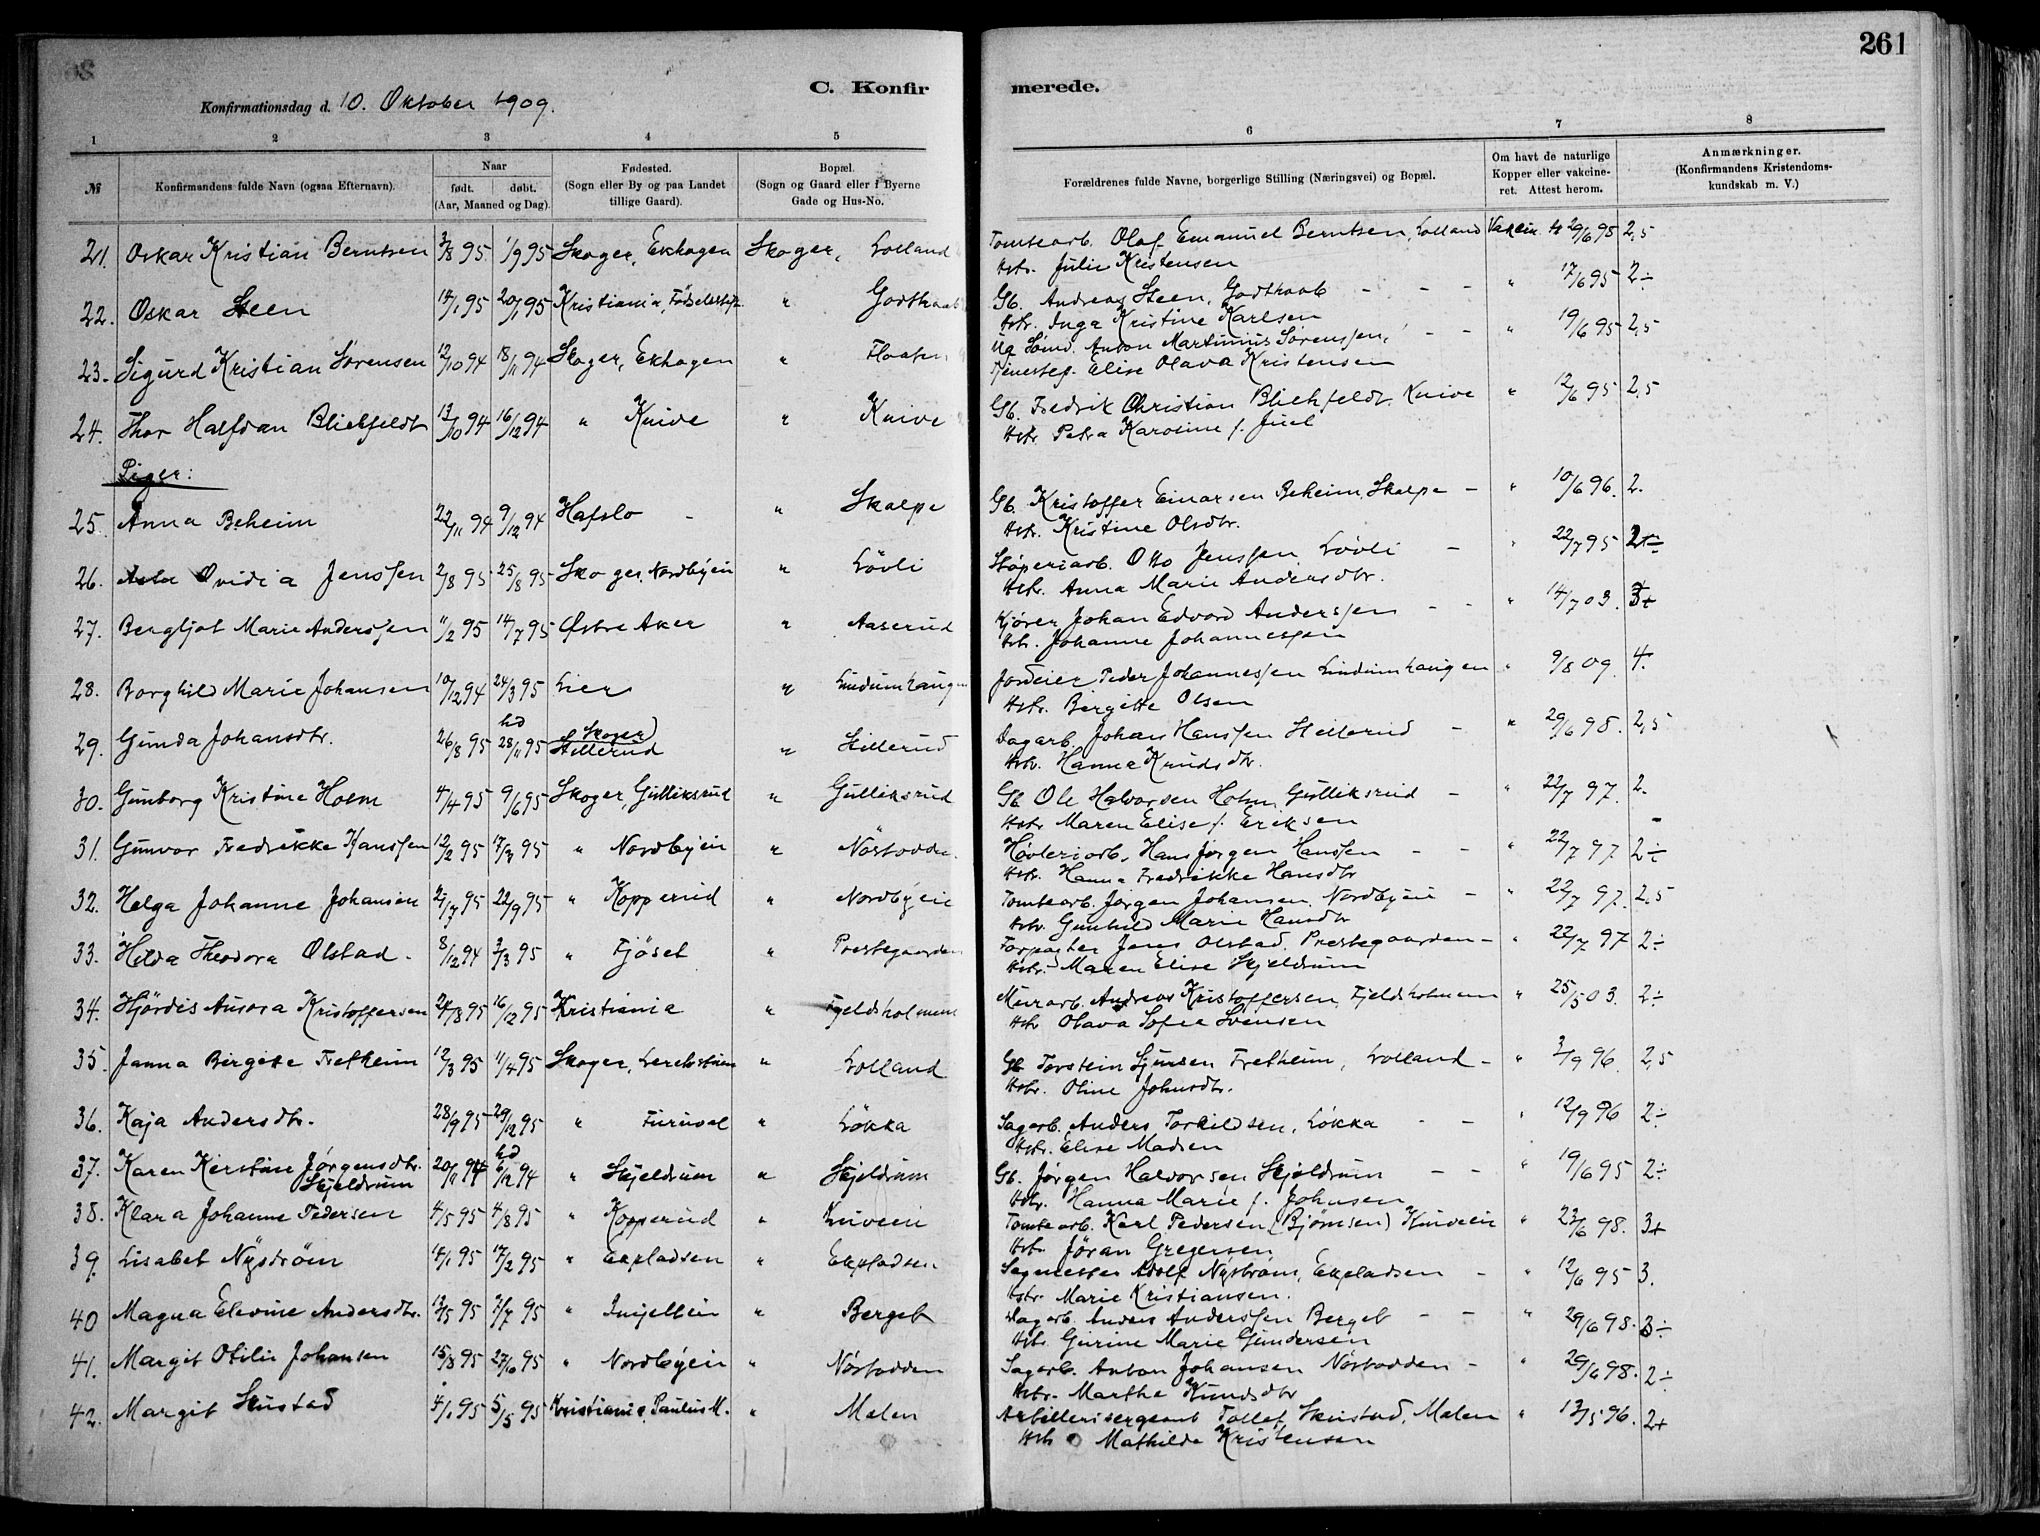 261
C. Konfirmerede.
Konfirmationsdag d. 10. Oktober 1909.
1 2 3 4 5 6 7 8
№ Konfirmandens fulde Navn (ogsaa Efternavn). Naar født. døbt. (Aar, Maaned og Dag). Fødested. (Sogn eller By og paa Landet tillige Gaard). Bopæl. (Sogn og Gaard eller i Byerne Gade og Hus-No. Forældrenes fulde Navne, borgerlige Stilling (Næringsvei) og Bopæl. Om havt de naturlige Kopper eller vakcineret. Attest herom. Anmærkninger. (Konfirmandens Kristendomskundskab m. V.)
21. Oskar Kristian Berntsen 3/8 95 1/9 95 Skoger, Ekhagen Skoger, Lolland Tomtearb. Olaf Emanuel Berntsen, Lolland Vakcin. 29/6 95 2,5
Hstr. Julie Kristensen
22. Oskar Steen 14/1 95 20/1 95 Kristiania, Fødselsstif. " Godthaab Gb. Andreas Steen, Godthaab - - - " 17/6 95 2÷
Hstr. Inga Kristine Karlsen
23. Sigurd Kristian Sørensen 12/10 94 18/11 94 Skoger, Ekhagen " Ug Sømd. Anton Martinius Sørenssen, - - " 19/6 95 2,5
Tjenestep. Elise Olava Kristensen
24. Thor Halfdan Blichfeldt 13/10 94 16/12 94 " Knive " Knive Gb. Fredrik Christian Blichfeldt, Knive " 12/6 95 2,5
Hstr Petra Karoline f. Juel
Piger:
25. Anna Beheim 22/11 94 9/12 94 Hafslo - " Skalpe Gb. Kristoffer Einarsen Beheim, Skalpe - " 10/6 96. 2.
Hstr. Kristine Olsdtr.
26. Ovidia Jenssen 2/8 95 25/8 95 Skoger, Nordbyen " Løvli Støperiarb. Otto Jenssen Løvli - " 22/7 95 2÷
Hstr. Anna Marie Andersdtr.
27. Bergljot Marie Anderssen 11/2 95 14/7 95 Østre Aker " Aaserud Kjører Johan Edvard Anderssen - - " 14/7 03. 3+
Hstr. Johanne Johannessen
28. Borghild Marie Johansen 10/12 94 24/3 95 Lier " Lindumhaugen Jordeier Peder Johannessen Lindumhaugen " 9/8 09 4.
Hstr. Birgitte Olsen
29. Gunda Johansdtr. 26/8 95 hd 28/11 95 Skoger Hillerud " Hillerud Dagarb. Johan Hanssen Hillerud - " 29/6 98. 2,5
Hstr. Hanna Knudsdtr.
30. Gunborg Kristine Holm 4/4 95 9/6 95 Skoger, Gulliksrud " Gulliksrud Gb Ole Halvorsen Holm, Gulliksrud - " 22/7 97. 2.
Hstr Maren Elise f. Ereksen
31. Gunvor Fredrikke Hanssen 12/2 95 17/3 95 " Nordbyen " Nøstodden. Høvleriarb. Hans Jørgen Hanssen - - " 22/7 97 2÷
Hstr. Hanna Fredrikke Hansdtr
32. Helga Johanne Johansen 2/7 95 22/9 95 " Kopperud " Nordbyen Tomtearb. Jørgen Johansen, Nordbyen - " 22/7 97. 2,5
Hstr. Gunhild Marie Hansdtr
33. Hilda Theodora Olstad. 8/12 94 3/3 95 " Fjøset " Prestegaarden Forpagter Jens Olstad, Prestegaarden - " 22/7 97 2÷
Hstr. Maren Elise Skjeldrum
34. Hjørdis Aurora Kristoffersen 24/8 95 16/12 95 Kristiania " Fjeldsholmene Murarb. Andreas Kristoffersen, Fjeldsholmene " 25/5 03. 2÷
Hstr Olava Sofie Svensen
35. Janna Birgitte Fretheim 12/3 95 11/4 95 Skoger, " Lolland Gb Torstein Sjursen Fretheim, Lolland - " 3/9 96. 2,5
Hstr. Oline Johnsdtr.
36. Kaja Andersdtr. 28/9 95 29/12 95 " Furuval " Løkka Sagarb. Anders Torkildsen, Løkka - - " 12/9 96 2÷
Hstr. Elise Madsen
37. Karen Kirstine Jørgensdtr. Skjeldrum 20/11 94 hd 6/12 94 " Skjeldrum " Skjeldrum Gb. Jørgen Halvorsen Skjeldrum - - " 19/6 95 2÷
Hstr. Hanna Marie f. Johnsen
38. Klara Johanne Pedersen 4/5 95 4/8 95 " Kopperud " Kniveien Tomtearb. Karl Pedersen (Bjørnsen) Kniveien " 23/6 98. 3+
Hstr Jøran Gregersen
39. Lisabet Nystrøm 14/1 95 17/2 95 " Expladsen " Expladsen Sagmester Adolf Nystrøm, Expladsen - " 12/6 95 3.
Hstr. Marie Kristiansen.
40 Magna Elevine Andersdtr. 13/5 95 7/7 95 " " Berget Dagarb. Anders Anderssen Berget - - " 29/6 98. 3÷
Hstr. Gurine Marie Gundersen
41. Margit Otilie Johansen 15/3 95 27/6 95 " Nordbyen " Nøstodden Sagarb. Anton Johansen Nøstodden - " 29/6 98. 2÷
Hstr. Marthe Knudsdtr
42. Margit Skustad 4/1 95 5/5 95 Kristiania, Paulus M. " Malen Artillerisergeant Tollef Skustad, Malen " 13/5 96. 2+
Hstr Mathilde Kristensen